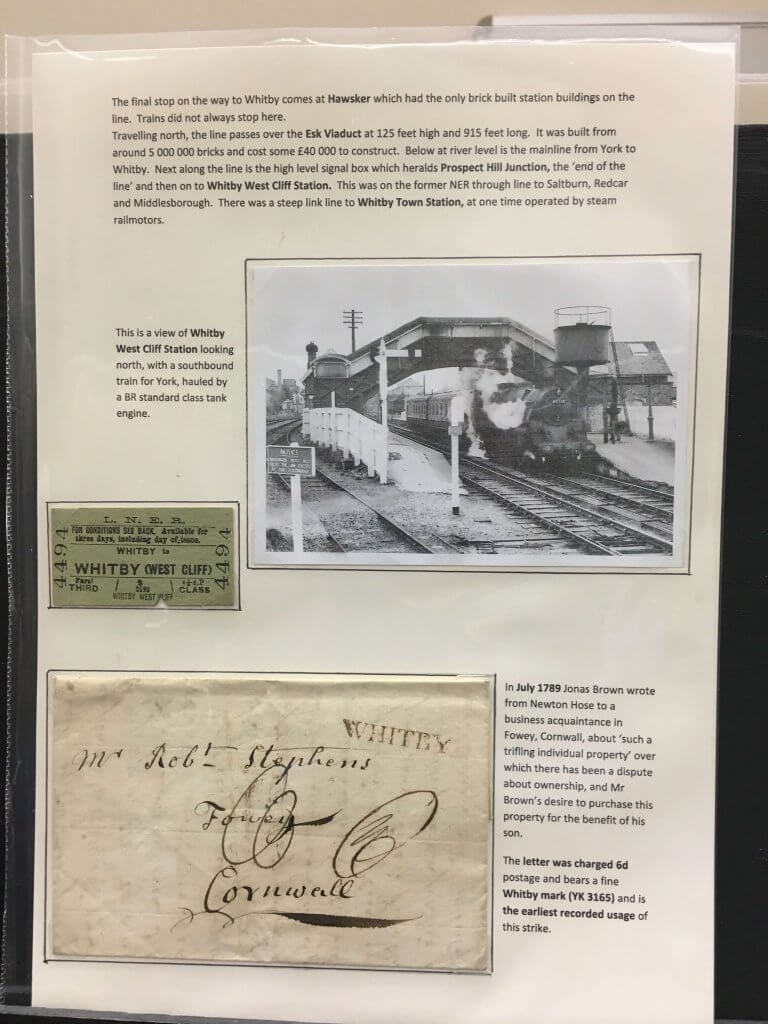 The final stop on the way to Whitby comes at Hawsker which had the only brick built station buildings on the
line. Trains did not always stop here.
Travelling north, the line passes over the Esk Viaduct at 125 feet high and 915 feet long. It was built from
around 5 000 000 bricks and cost some £40 000 to construct. Below at river level is the mainline from York to
Whitby. Next along the line is the high level signal box which heralds Prospect Hill Junction, the 'end of the
line' and then on to Whitby West Cliff Station. This was on the former NER through line to Saltburn, Redcar
and Middlesborough. There was a steep link line to Whitby Town Station, at one time operated by steam
railmotors.
This is a view of Whitby
West Cliff Station looking
north, with a southbound
train for York, hauled by
a BR standard class tank
engine.
NOTICE
L. N. E. R.
FOR CONDITIONS SEE BACK. Available for
three days, including day of issue.
WHITBY to
WHITBY (WEST CLIFF)
THIRD
CLASS
WHITBY WEST CLIFF
4494
4494
WHITBY
Mr Robt Stephens
Fowey
Cornwall
In July 1789 Jonas Brown wrote
from Newton Hose to a
business acquaintance in
Fowey, Cornwall, about 'such a
trifling individual property' over
which there has been a dispute
about ownership, and Mr
Brown's desire to purchase this
property for the benefit of his
son.
The letter was charged 6d
postage and bears a fine
Whitby mark (YK 3165) and is
the earliest recorded usage of
this strike.